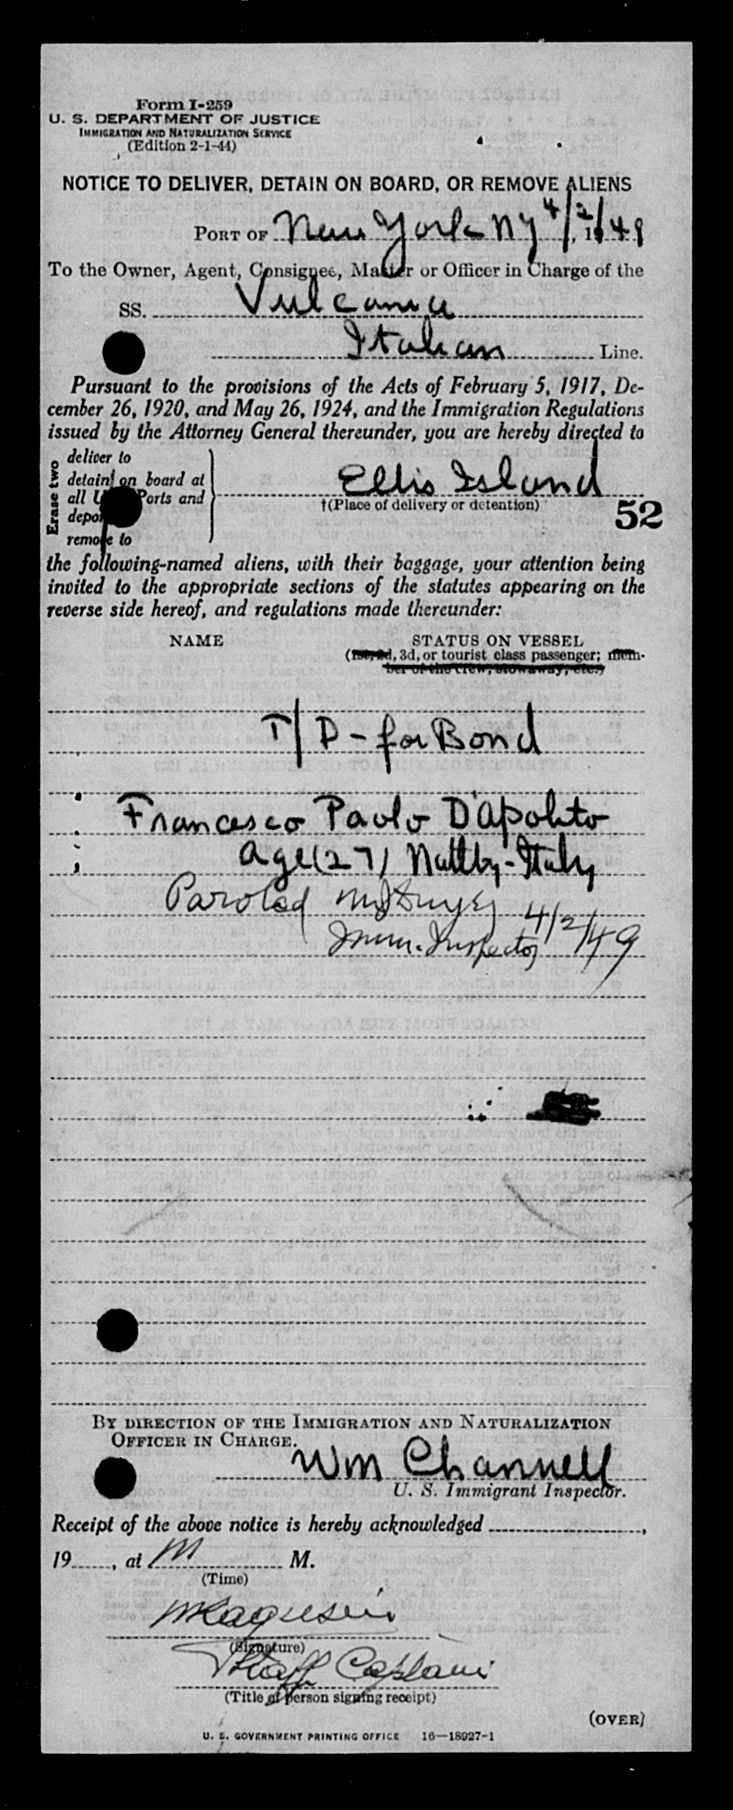 Form I-259
U. S. DEPARTMENT OF JUSTICE
IMMIGRATION AND NATURALIZATION SERVICE
(Edition 2-1-44)
NOTICE TO DELIVER, DETAIN ON BOARD, OR REMOVE ALIENS
PORT OF New York NY 4/2/, 1949
To the Owner, Agent, Consignee, Master or Officer in Charge of the
SS. Vulcania
Italian Line.
Pursuant to the provisions of the Acts of February 5, 1917, De-
cember 26, 1920, and May 26, 1924, and the Immigration Regulations
issued by the Attorney General thereunder, you are hereby directed to
Erase two
deliver to
detain on board at
all U Ports and
depo
remove to
Ellis Island
†(Place of delivery or detention)
52
the following-named aliens, with their baggage, your attention being
invited to the appropriate sections of the statutes appearing on the
reverse side hereof, and regulations made thereunder:
NAME STATUS ON VESSEL
(1st, 2d, 3d, or tourist class passenger; mem-
ber of the crew, stowaway, etc.)
T/D - for Bond
Francesco Paolo D'Apolito
age (27) Natlty - Italy
Paroled 4/2/49
Imm. Inspector
BY DIRECTION OF THE IMMIGRATION AND NATURALIZATION
OFFICER IN CHARGE.
Wm Channell
U. S. Immigrant Inspector.
Receipt of the above notice is hereby acknowledged ,
19 , at M M.
(Time)
(Signature)
Staff Captain
(Title of person signing receipt)
(OVER)
U. S. GOVERNMENT PRINTING OFFICE 16—18027-1